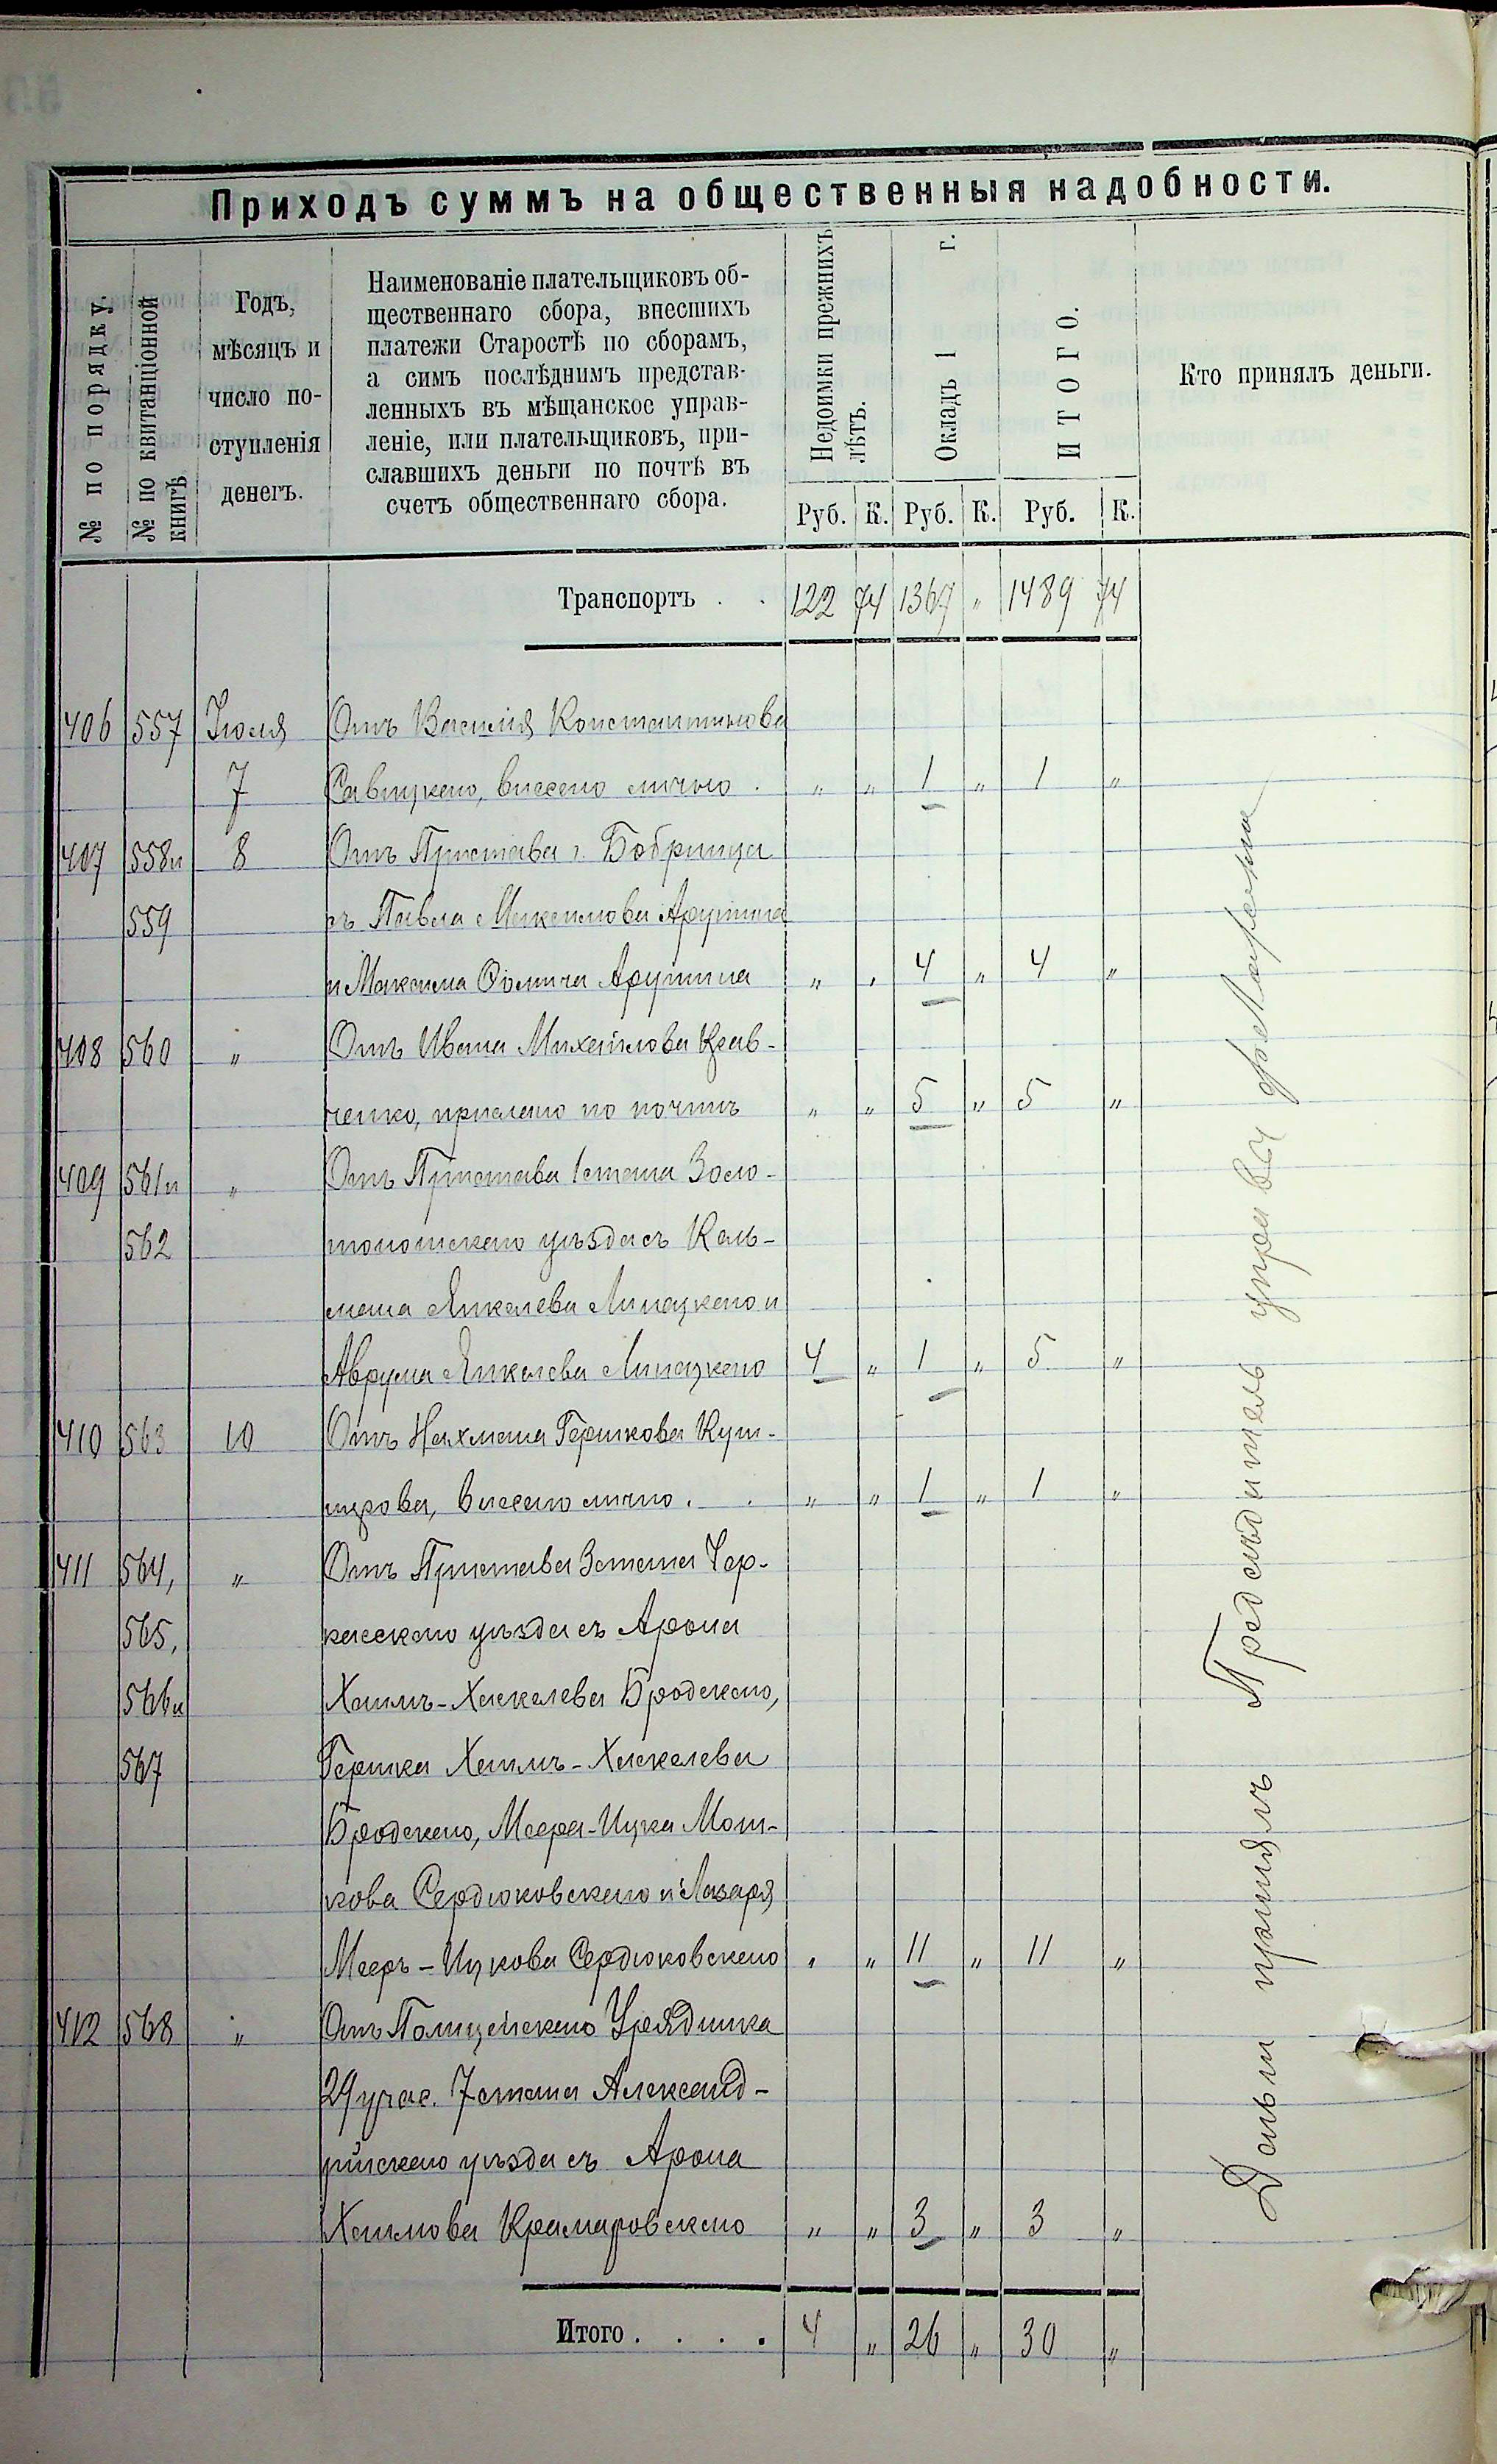 Приходъ суммъ на общественныя надобности.
№ по порядку.
№ по квитанціонной книгѣ
Годъ, мѣсяцъ и число поступленія денегъ.
Наименованіе плательщиковъ об-
щественнаго сбора, внесшихъ
платежи Старостѣ по сборамъ,
а симъ послѣднимъ представ-
ленныхъ въ мѣщанское управ-
леніе, или плательщиковъ, при-
славшихъ деньги по почтѣ въ
счетъ общественнаго сбора.
Недоимки прежнихъ лѣтъ.
Окладъ 1 г.
ИТОГО.
Кто принялъ деньги.
Руб. К. Руб. К. Руб. К.
Транспортъ . . 122 74 1367 " 1489 74
406 557 Іюля Отъ Василія Константинова
7 Савицкаго, внесено лично . " " 1 " 1 "
407 558и 8 Отъ Пристава г. Бобринца
559 съ Павла Максимова
и Максима " " 4 " 4 "
408 560 " Отъ Ивана Михайлова Крав-
ченко, прислано по почтѣ " " 5 " 5 "
409 561и " Отъ Пристава 1 стана Золо-
562 тоношскаго уѣзда съ Каль-
мана Янкелева Липецкаго и
Аврума Янкелева Липецкаго 4 " 1 " 5 "
410 563 10 Отъ Нахмана Гершкова Куш-
нирова, внесено лично . . " " 1 " 1 "
411 564, " Отъ Пристава 3 стана Чер-
565, касскаго уѣзда съ Арона
566и Хаимъ-Хаскелева Бродскаго,
567 Гершка Хаимъ-Хаскелева
Бродскаго, Меера-Ицка Мош-
кова Сердюковскаго и Лазаря
Мееръ-Ицкова Сердюковскаго " " 11 " 11 "
412 568 " Отъ Полицейскаго Урядника
29 учас. 7 стана Александ-
рійскаго уѣзда съ Арона
Хаимова Крамаровскаго " " 3 " 3 "
Итого . . . . 4 " 26 " 30 "
Деньги принялъ Предсѣдатель управы